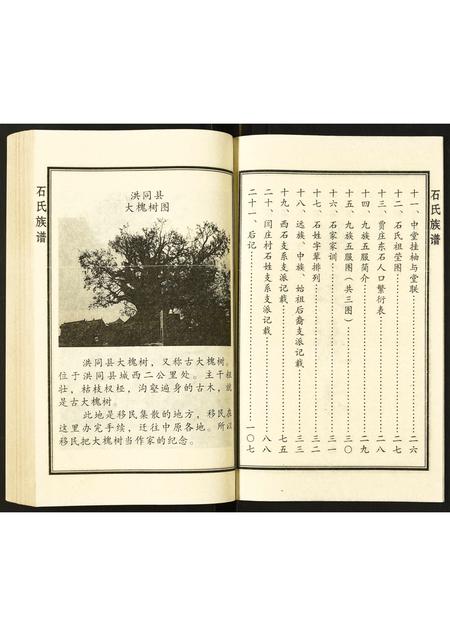 石氏族谱
十一、中堂挂袖与堂联……二六
十二、石氏祖茔图……二七
十三、贾庄东石人口繁衍表……二八
十四、九族五服简介……二九
十五、九族五服图（共三图）……三〇
十六、石家家训……三一
十七、石姓字辈排列……三二
十八、远族、中族、始祖后裔支派记载……三三
十九、西石支系支派记载……七五
二十、闫庄村石姓支系支派记载……八八
二十一、后记……一〇七
石氏族谱
洪同县
大槐树图
洪同县大槐树，又称古大槐树。
位于洪同县城西二公里处。主干粗
壮，枯枝杈桠，沟壑遍身的古木，就
是古大槐树。
此地是移民集散的地方，移民在
这里办完手续，迁往中原各地。所以
移民把大槐树当作家的纪念。